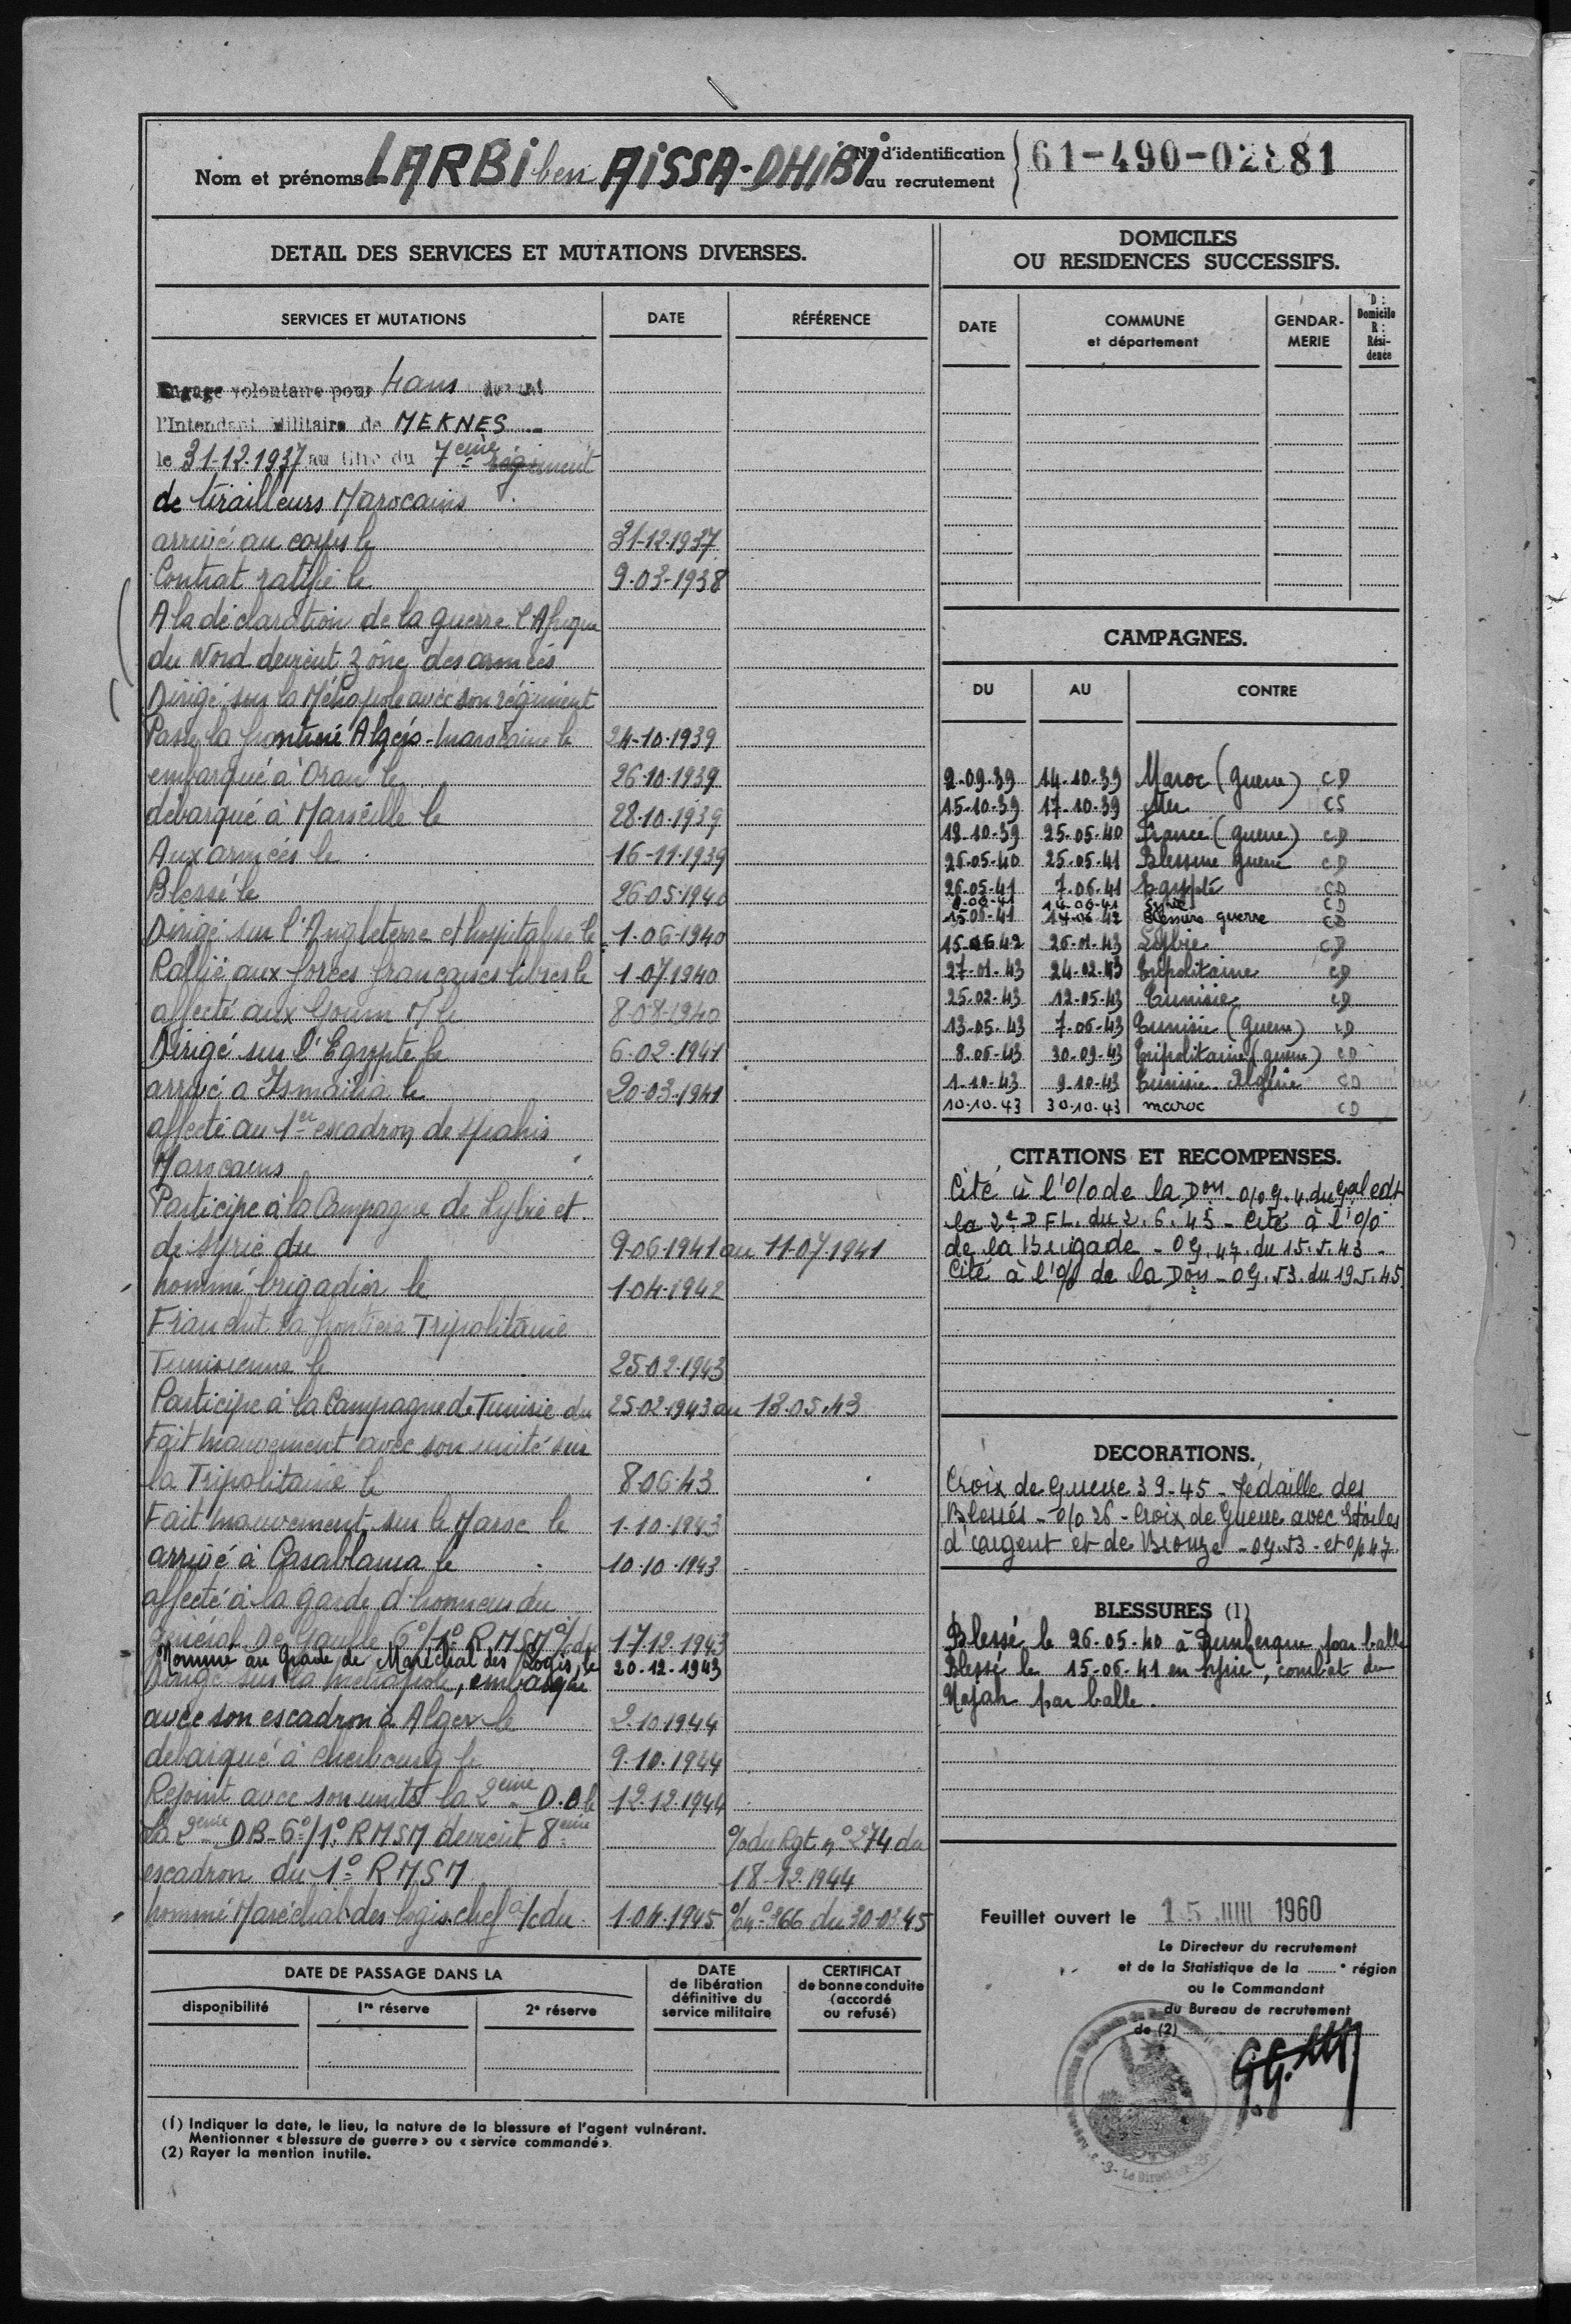 Nom et prénoms LARBI ben AISSA-DHIBI
No d'identification au recrutement 61-490-02881
DETAIL DES SERVICES ET MUTATIONS DIVERSES.
SERVICES ET MUTATIONS DATE RÉFÉRENCE
Engagé volontaire pour 4 ans devant
l'Intendant Militaire de MEKNES
le 31-12-1937 au titre du 7eme régiment
de tirailleurs Marocains
arrivé au corps le 31-12-1937
Contrat ratifié le 9-03-1938
A la déclaration de la guerre l'Afrique
du Nord devient zône des armées
Dirigé sur la Métropole avec son régiment
Passe la frontière Algéro-marocaine le 24-10-1939
embarqué à Oran le 26-10-1939
débarqué à Marseille le 28-10-1939
Aux armées le 16-11-1939
Blessé le 26-05-1940
Dirigé sur l'Angleterre et hospitalisé le 1-06-1940
Rallié aux forces françaises libres le 1-07-1940
affecté aux Goum M le 8-08-1940
Dirigé sur l'Egypte le 6-02-1941
arrivé a Ismaïlia le 20-03-1941
affecté au 1er escadron de spahis
Marocains
Participe à la Campagne de Lybie et
de Syrie du 9-06-1941 au 11-07-1941
nommé brigadier le 1-04-1942
Franchit la frontière Tripolitaine
Tunisienne le 25-02-1943
Participe à la Campagne de Tunisie du 25-02-1943 au 12.05.43
Fait mouvement avec son unité sur
la Tripolitaine le 8-06-43
Fait mouvement sur le Maroc le 1-10-1943
arrivé à Casablanca le 10-10-1943
affecté à la garde d'honneur du
général De Gaulle 6°/1° RMSM a/c du 17-12-1943
Nommé au Grade de Maréchal des Logis, le 20-12-1943
Dirigé sur la métropole, embarqué
avec son escadron à Alger le 2-10-1944
debarqué à Cherbourg le 9-10-1944
Rejoint avec son unité la 2eme D.B le 12-12-1944
La 2eme DB-6°/1° RMSM devient 8eme % du Rgt n° 274 du
escadron du 1° RMSM 18-12-1944
nommé Maréchal-des-logis-chef a/c du 1-04-1945 % n° 366 du 30-03-45
DATE DE PASSAGE DANS LA
disponibilité 1re réserve 2e réserve
DATE de libération définitive du service militaire
CERTIFICAT de bonne conduite (accordé ou refusé)
(1) Indiquer la date, le lieu, la nature de la blessure et l'agent vulnérant.
Mentionner « blessure de guerre » ou « service commandé ».
(2) Rayer la mention inutile.
DOMICILES
OU RESIDENCES SUCCESSIFS.
DATE COMMUNE et département GENDAR-MERIE D : Domicile R : Rési-dence
CAMPAGNES.
DU AU CONTRE
2-09-39 14-10-39 Maroc (guerre) CD
15-10-39 17-10-39 Mer CS
18-10-39 25-05-40 France (guerre) CD
26-05-40 25-05-41 Blessure guerre CD
26-05-41 7-06-41 Egypte CD
8-06-41 14-06-41 Syrie CD
15-06-41 14-06-42 Blessure guerre CD
15-06-42 26-01-43 Lybie CD
27-01-43 24-02-43 Tripolitaine CD
25-02-43 12-05-43 Tunisie CD
13-05-43 7-06-43 Tunisie (guerre) CD
8-06-43 30-09-43 Tripolitaine (guerre) CD
1-10-43 9-10-43 Tunisie-Algérie CD
10-10-43 30-10-43 maroc CD
CITATIONS ET RECOMPENSES.
Cité à l'o/o de la Don - o/o G. 4 du Gal Cdt
la 2e DFL. du 2.6.43 - Cité à l'o/o
de la Brigade - OG. 47. du 15.5.43 -
Cité à l'o/o de la Don - OG. 53. du 19.5.45.
DECORATIONS.
Croix de Guerre 39-45 - Médaille des
Blessés - o/o 26 - Croix de Guerre avec Etoiles
d'argent et de Bronze - OG. 53 - et o/o 47.
BLESSURES (1)
Blessé le 26-05-40 à Dunkerque par balle
Blessé le 15-06-41 en Syrie, combat de
Nejah par balle.
Feuillet ouvert le 15 JUIN 1960
Le Directeur du recrutement
et de la Statistique de la ....... e région
ou le Commandant
du Bureau de recrutement
de (2)